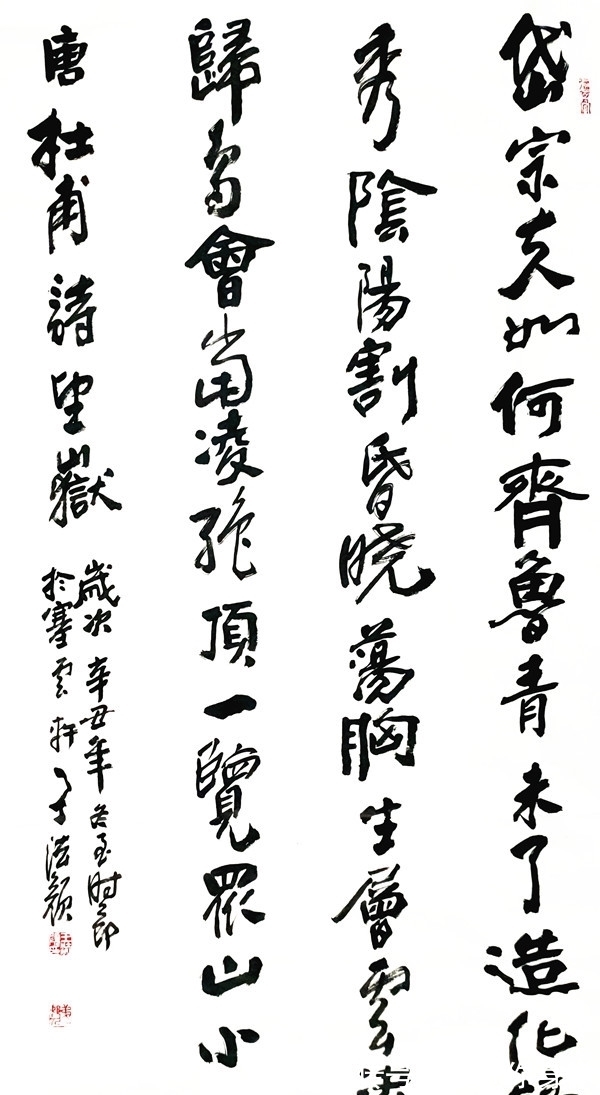 岱宗夫如何齊魯青未了造化
秀陰陽割昏曉蕩胸生層雲
歸鳥會當凌絕頂一覽眾山小
唐杜甫詩望嶽
歲次辛丑年冬至时節
於塞雲軒